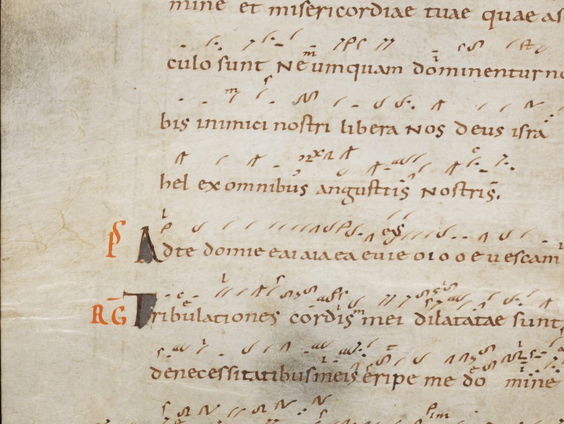 mine et misericordiae tuae quae as
culo sunt Ne umquam dominentur no
bis inimici nostri libera Nos deus isra
hel ex omnibus angusttis Nostris.
Ps Adte domine eaiaiaeaeuieoiooeuescam
RG Tribulationes cordis mei dilatatae sunt
denecessitatibusmeis eripe me do mine